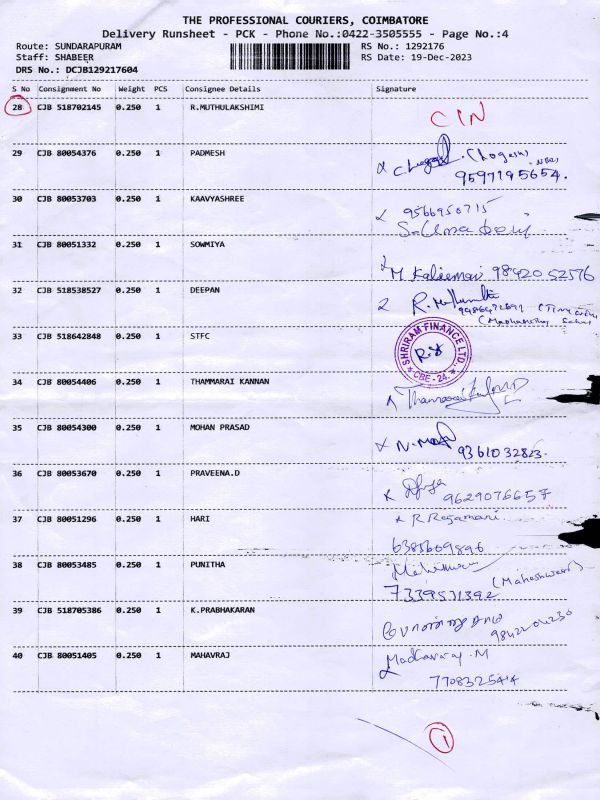 THE PROFESSIONAL COURIERS, COIMBATORE
Delivery Runsheet - PCK - Phone No.:0422-3505555 - Page No.:4
Route: SUNDARAPURAM RS No.: 1292176
Staff: SHABEER RS Date: 19-Dec-2023
DRS No.: DCJB129217604
S No Consignment No Weight PCS Consignee Details Signature
28 CJB 518702145 0.250 1 R.MUTHULAKSHIMI
29 CJB 80054376 0.250 1 PADMESH (Logesh)
9597195654.
30 CJB 80053703 0.250 1 KAAVYASHREE 9566950715
31 CJB 80051332 0.250 1 SOWMIYA
M 98420 52576
32 CJB 518538527 0.250 1 DEEPAN R.
33 CJB 518642848 0.250 1 STFC SHRIRAM FINANCE LTD.
CBE - 24.
34 CJB 80054406 0.250 1 THAMMARAI KANNAN
35 CJB 80054300 0.250 1 MOHAN PRASAD
36 CJB 80053670 0.250 1 PRAVEENA.D
9629076657
37 CJB 80051296 0.250 1 HARI R Rajamani
6385609896
38 CJB 80053485 0.250 1 PUNITHA (Maheshwari)
7339531392
39 CJB 518705386 0.250 1 K.PRABHAKARAN
40 CJB 80051405 0.250 1 MAHAVRAJ Madhavaraj. M
7708325414
1